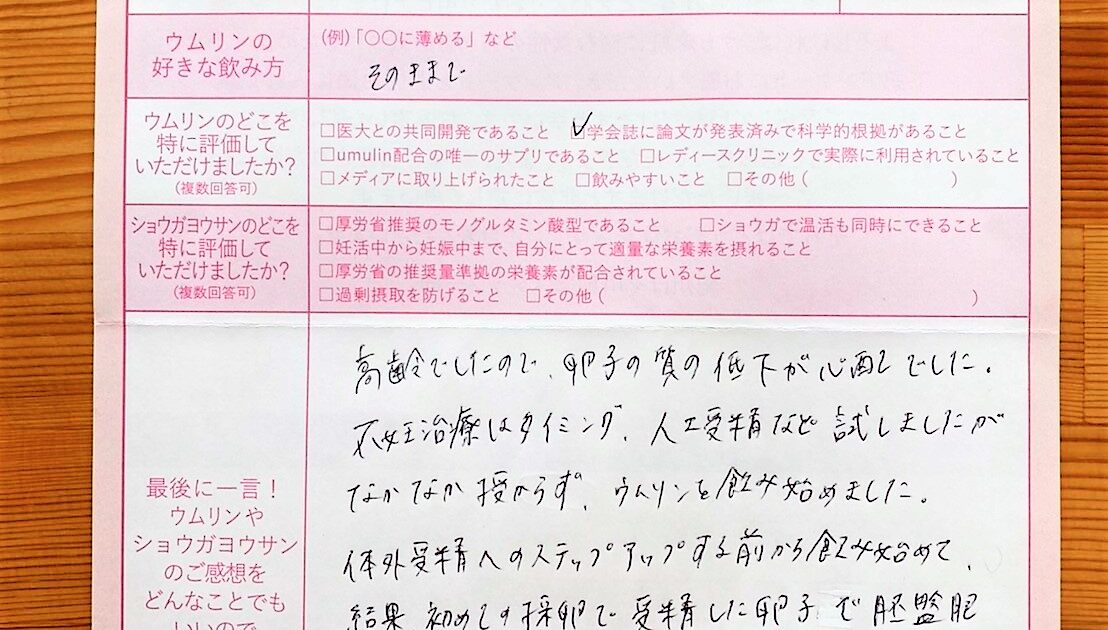 ウムリンの
好きな飲み方
(例)「○○に薄める」など
そのままで
ウムリンのどこを
特に評価して
いただけましたか?
(複数回答可)
□医大との共同開発であること ☑学会誌に論文が発表済みで科学的根拠があること
□umulin配合の唯一のサプリであること □レディースクリニックで実際に利用されていること
□メディアに取り上げられたこと □飲みやすいこと □その他( )
ショウガヨウサンのどこを
特に評価して
いただけましたか?
(複数回答可)
□厚労省推奨のモノグルタミン酸型であること □ショウガで温活も同時にできること
□妊活中から妊娠中まで、自分にとって適量な栄養素を摂れること
□厚労省の推奨量準拠の栄養素が配合されていること
□過剰摂取を防げること □その他( )
最後に一言!
ウムリンや
ショウガヨウサン
のご感想を
どんなことでも
いいので
高齢でしたので、卵子の質の低下が心配でした。
不妊治療はタイミング、人工受精など試しましたが
なかなか授からず、ウムリンを飲み始めました。
体外受精へのステップアップする前から飲み始めて、
結果 初めての採卵で受精した卵子で胚盤胞